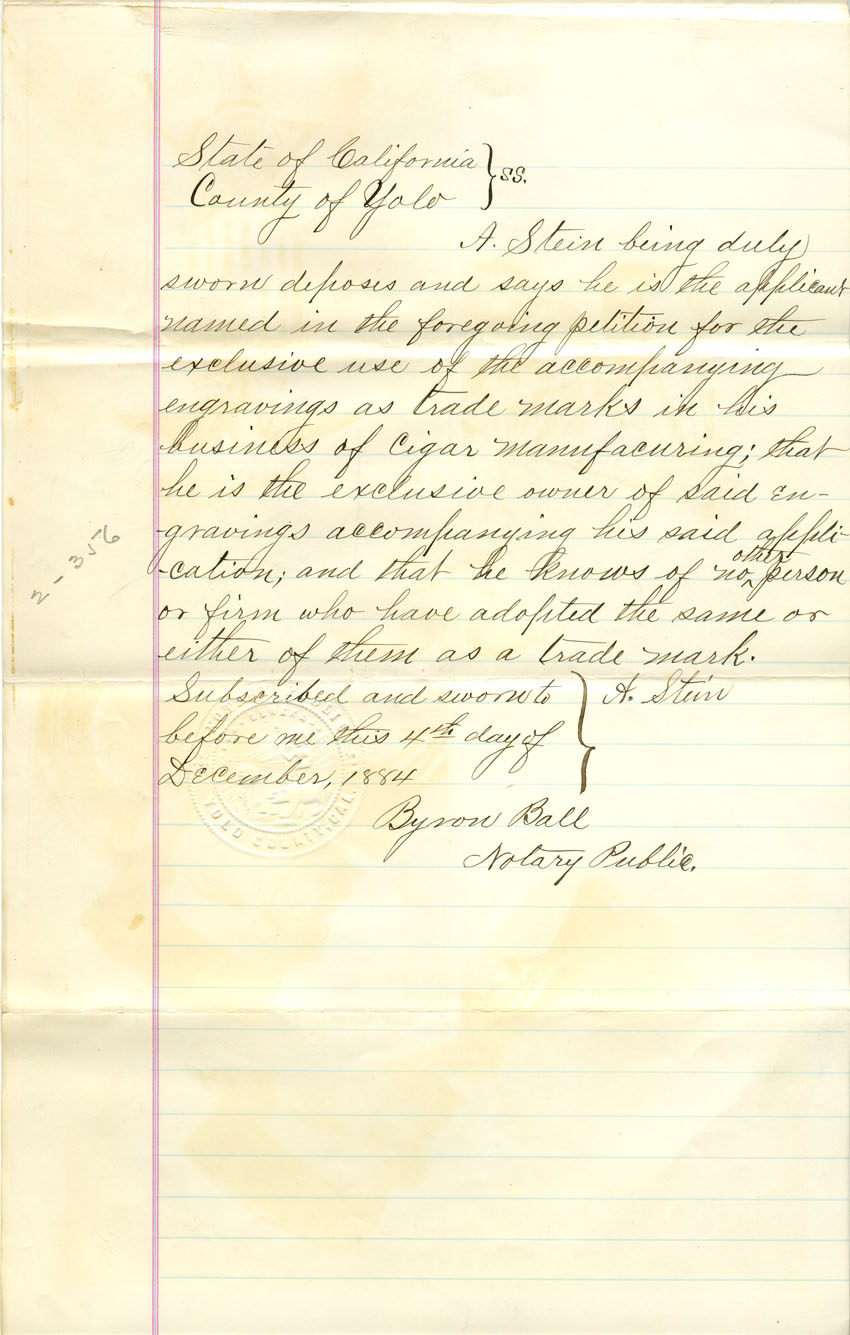 State of California } ss.
County of Yolo
A. Stein being duly
sworn deposes and says he is the applicant
named in the foregoing petition for the
exclusive use of the accompanying
engravings as trade marks in his
business of cigar manufacuring; that
he is the exclusive owner of said en-
-gravings accompanying his said appli-
-cation; and that he knows of no ^other person
or firm who have adopted the same or
either of them as a trade mark.
Subscribed and sworn to } A. Stein
before me this 4th day of
December, 1884
Byron Ball
Notary Public.
2-356
YOLO COUNTY, CAL.